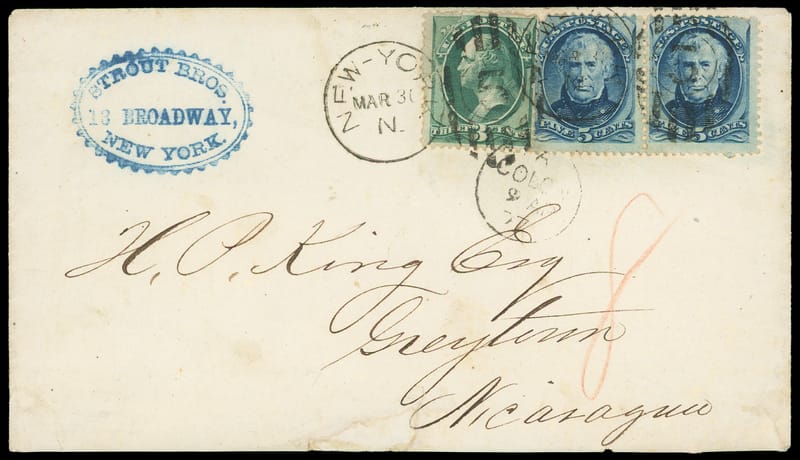 STROUT BROS.
18 BROADWAY,
NEW YORK.
NEW-YO
MAR 30
N.
THREE CENTS
3
U.S. POSTAGE
FIVE 5 CENTS
U.S. POSTAGE
FIVE 5 CENTS
COLO
H. P. King Esq
Greytown
Nicaragua
8